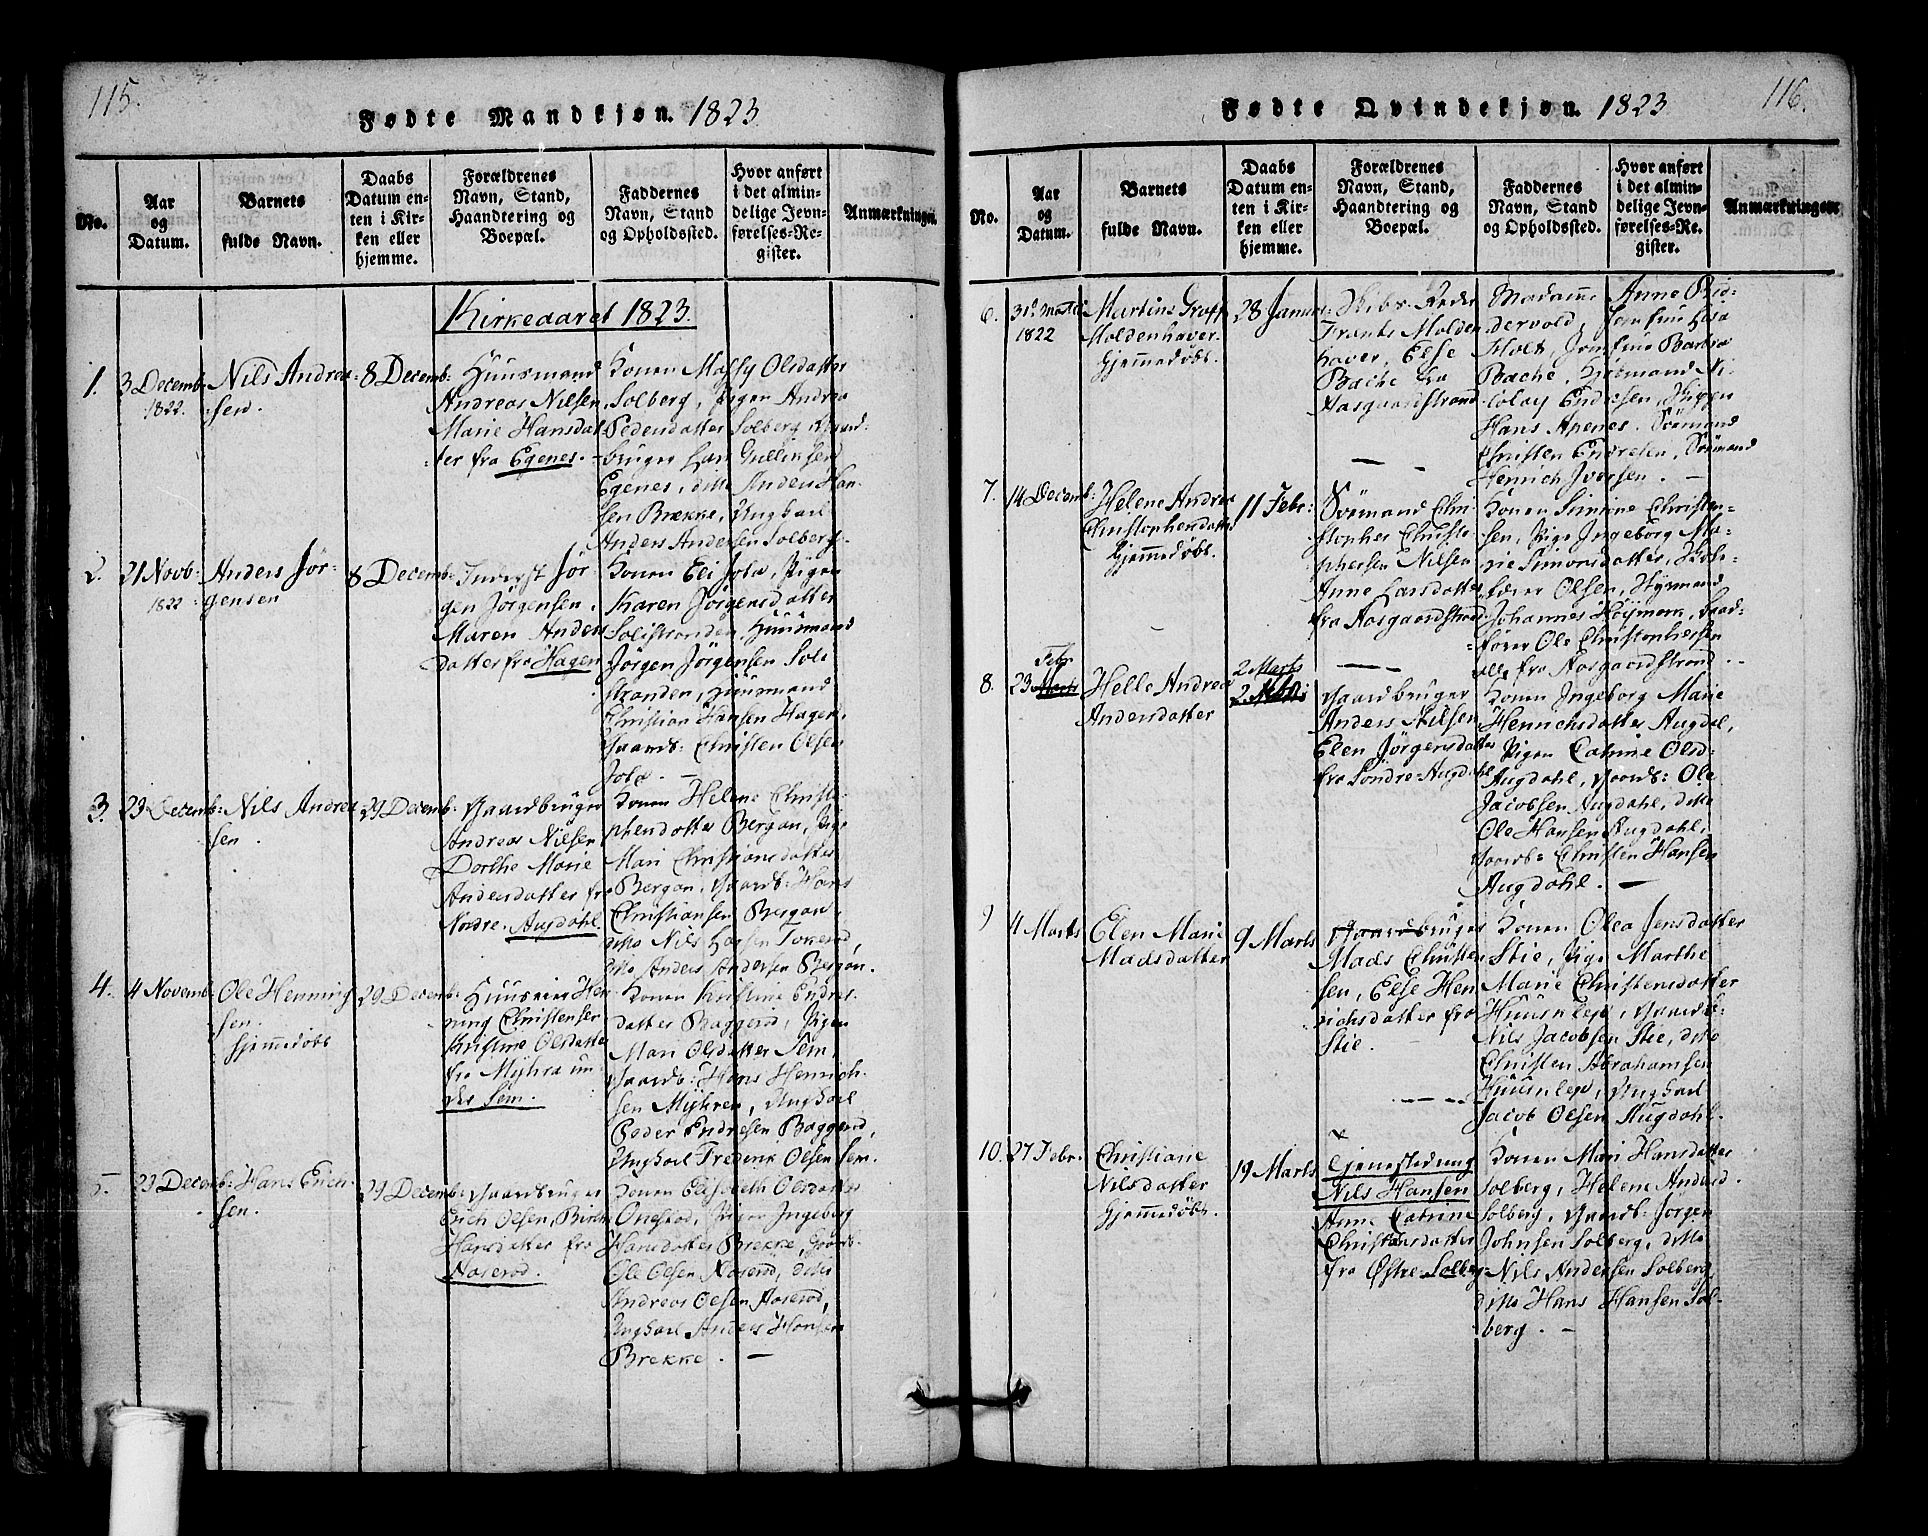 115.
Fødte Mandkjøn. 1823
No.
Aar
og
Datum.
Barnets
fulde Navn.
Daabs
Datum en-
ten i Kir-
ken eller
hjemme.
Forældrenes
Navn, Stand,
Haandtering og
Boepæl.
Faddernes
Navn, Stand
og Opholdssted.
Hvor anført
i det almin-
delige Jevn-
førelses-Re-
gister.
Anmærkninger.
Kirkeaaret 1823.
1.
3 Decemb:
1822.
Nils Andrea-
sen.
8 Decemb:
Huusmand
Andreas Nilsen,
Marie Hansdat-
ter fra Egenes.
Konen Massy Olsdatter
Solberg, Pigen Andrea
Pedersdatter Solberg, Gaard-
bruger Lars Gulliksen
Egenes, ditto Anders Han-
sen Brekke, Ungkarl
Anders Andersen Solberg.
2.
21 Novb:
1822
Anders Jør-
gensen
8 Decemb:
Inderst Jør
gen Jörgensen.
Maren Anders
datter fra Hagen
Konen Eli Jola, Pigen
Karen Jörgensdatter
Solistranden, Huusmand
Jörgen Jörgensen Soli
stranden, Huusmand
Christian Hansen Hagen,
Gaardb: Christen Olsen
Jola. —
3.
23 Decemb:
Nils Andrea
sen.
29 Decemb:
Gaardbruger
Andreas Nilsen
Dorthe Marie
Andersdatter fra
Nordre Augdahl.
Konen Helene Christo-
phersdatter Bergan, Pige
Mari Christiansdatter
Bergan, Gaardb: Hans
Christiansen Bergan,
ditto Nils Larsen Tokerød,
ditto Anders Andersen Bergan.
4.
4 Novemb:
Ole Henning
sen.
Hjemmedøbt
29 Decemb:
Huusmand Hen
ning Christensen
Kristine Olsdatter
fra Myhra un
der Sem.
Konen Kristine Endres-
datter Baggerød, Pigen
Mari Olsdatter Sem,
Gaardb: Hans Henrich-
sen Myhren, Ungkarl
Peder Endresen Baggerød,
Ungkarl Frederik Olsen Sem.
5.
23 Decemb:
Hans Erich-
sen.
29 Decemb:
Gaardbruger
Erich Olsen, Birthe
Hansdatter fra
Aaserød.
Konen Elisabeth Olsdatter
Onestad, Pigen Ingeborg
Hansdatter Brekke, Gaardb:
Ole Olsen Aaserød, ditto
Andreas Olsen Aaserød,
Ungkarl Anders Hansen
Brekke. —
116.
Fødte Qvindekjøn. 1823
No.
Aar
og
Datum.
Barnets
fulde Navn.
Daabs
Datum en-
ten i Kir-
ken eller
hjemme.
Forældrenes
Navn, Stand,
Haandtering og
Boepæl.
Faddernes
Navn, Stand
og Opholdssted.
Hvor anført
i det almin-
delige Jevn-
førelses-Re-
gister.
Anmærkninger.
6.
31te
1822
Martine
Moldenhaver
Hjemmedøbt.
28 Januar:
Skibs-Reder
Frants Molden
haver, Else
Bache fra
Aasgaardstrand
Madame Anne Rid-
dervold, Jomfrue Lisa
Holt, Jomfrue Barbra
Bache, Kjöbmand Ni-
colay Endresen, Skipper
Hans Apenes. Sömand
Christen Endresen, Sömand
Henrich Iversen. —
7.
14 Decemb:
Helene Andrea
Christophersdatter
Hjemmedøbt.
11 Febr:
Sömand Chri-
stopher Christo-
phersen Nilsen
Anne Larsdatter
fra Aasgaardstrand
Konen Simine Christen-
sen, Pige Ingeborg Ma-
rie Simonsdatter,
fører Olsen, Styrmand
Johannes Höymork, Baad-
förer Ole Christophersen
alle fra Aasgaardstrand.
8.
Febr
23 Marts
Helle Andrea
Andersdatter
2 Marts
2 Febr:
Gaardbruger
Anders Nilsen,
Elen Jörgensdatter
fra Söndre Augdahl
Konen Ingeborg Marie
Henrichsdatter Augdal,
Pigen Catrine Olsd:
Augdahl, Gaardb: Ole
Jacobsen Augdahl, ditto
Ole Hansen Augdahl,
Gaardb: Christen Hansen
Augdahl. —
9
4 Marts
Elen Marie
Madsdatter
9 Marts
Gaardbruger
Mads Christen
sen, Else Hen
richsdatter fra
Stie.
Konen Olea Jensdatter
Stie, Pige Marthe
Marie Christensdatter
Huusnlepe, Gaardb:
Nils Jacobsen Stie, ditto
Christen Abrahamsen
Huusnlepe, Ungkarl
Jacob Olsen Augdahl.
10.
27 Febr.
Christiane
Nilsdatter
Hjemmedøbt.
19 Marts
Tjenestedreng
Nils Hansen
Anne Catrine
Christensdatter
fra Østre Solberg
Konen Mari Hansdatter
Solberg, Helene Andersd.
Solberg, Gaardb: Jörgen
Johnsen Solberg, ditto
Nils Andersen Solberg,
ditto Hans Hansen Sol-
berg. —